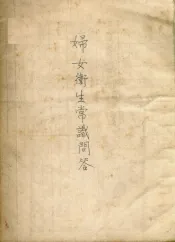 婦女衛生常識問答